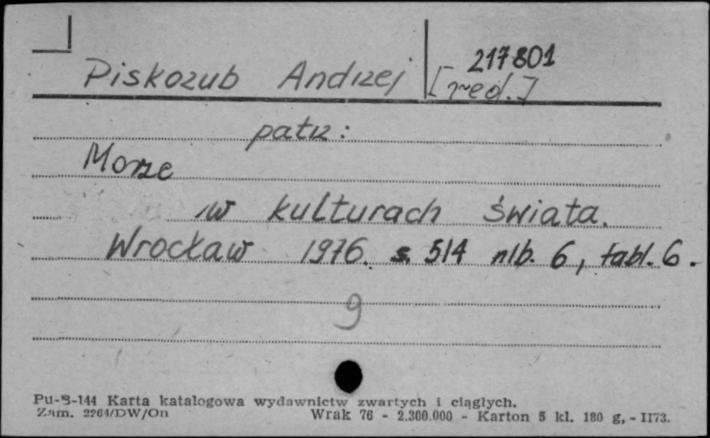 217801
Piskozub Andrzej [red.]
patrz:
Morze
w kulturach świata.
Wrocław 1976. s. 514 nlb. 6, tabl. 6.
9
Pu-B-144 Karta katalogowa wydawnictw zwartych i ciągłych.
Zam. 2264/DW/On Wrak 76 - 2.300.000 - Karton 5 kl. 180 g, - II73.